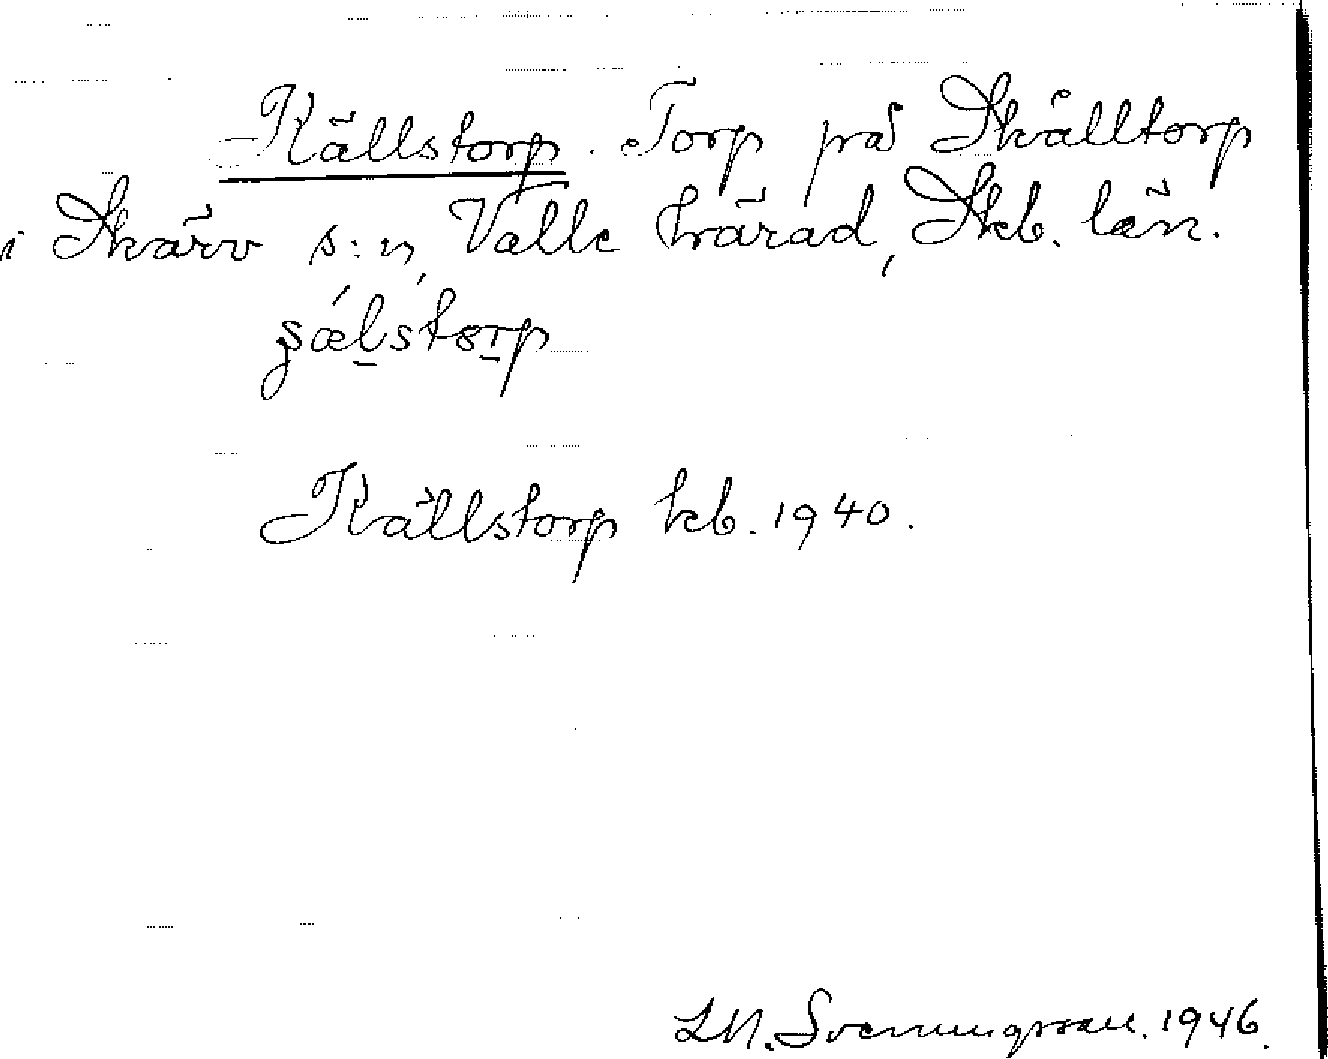 Källstorp. Torp på Skålltorp
i Skärv s:n, Valle härad, Skb. län.
Källstorp kb. 1940.
Svenungsson. 1946.